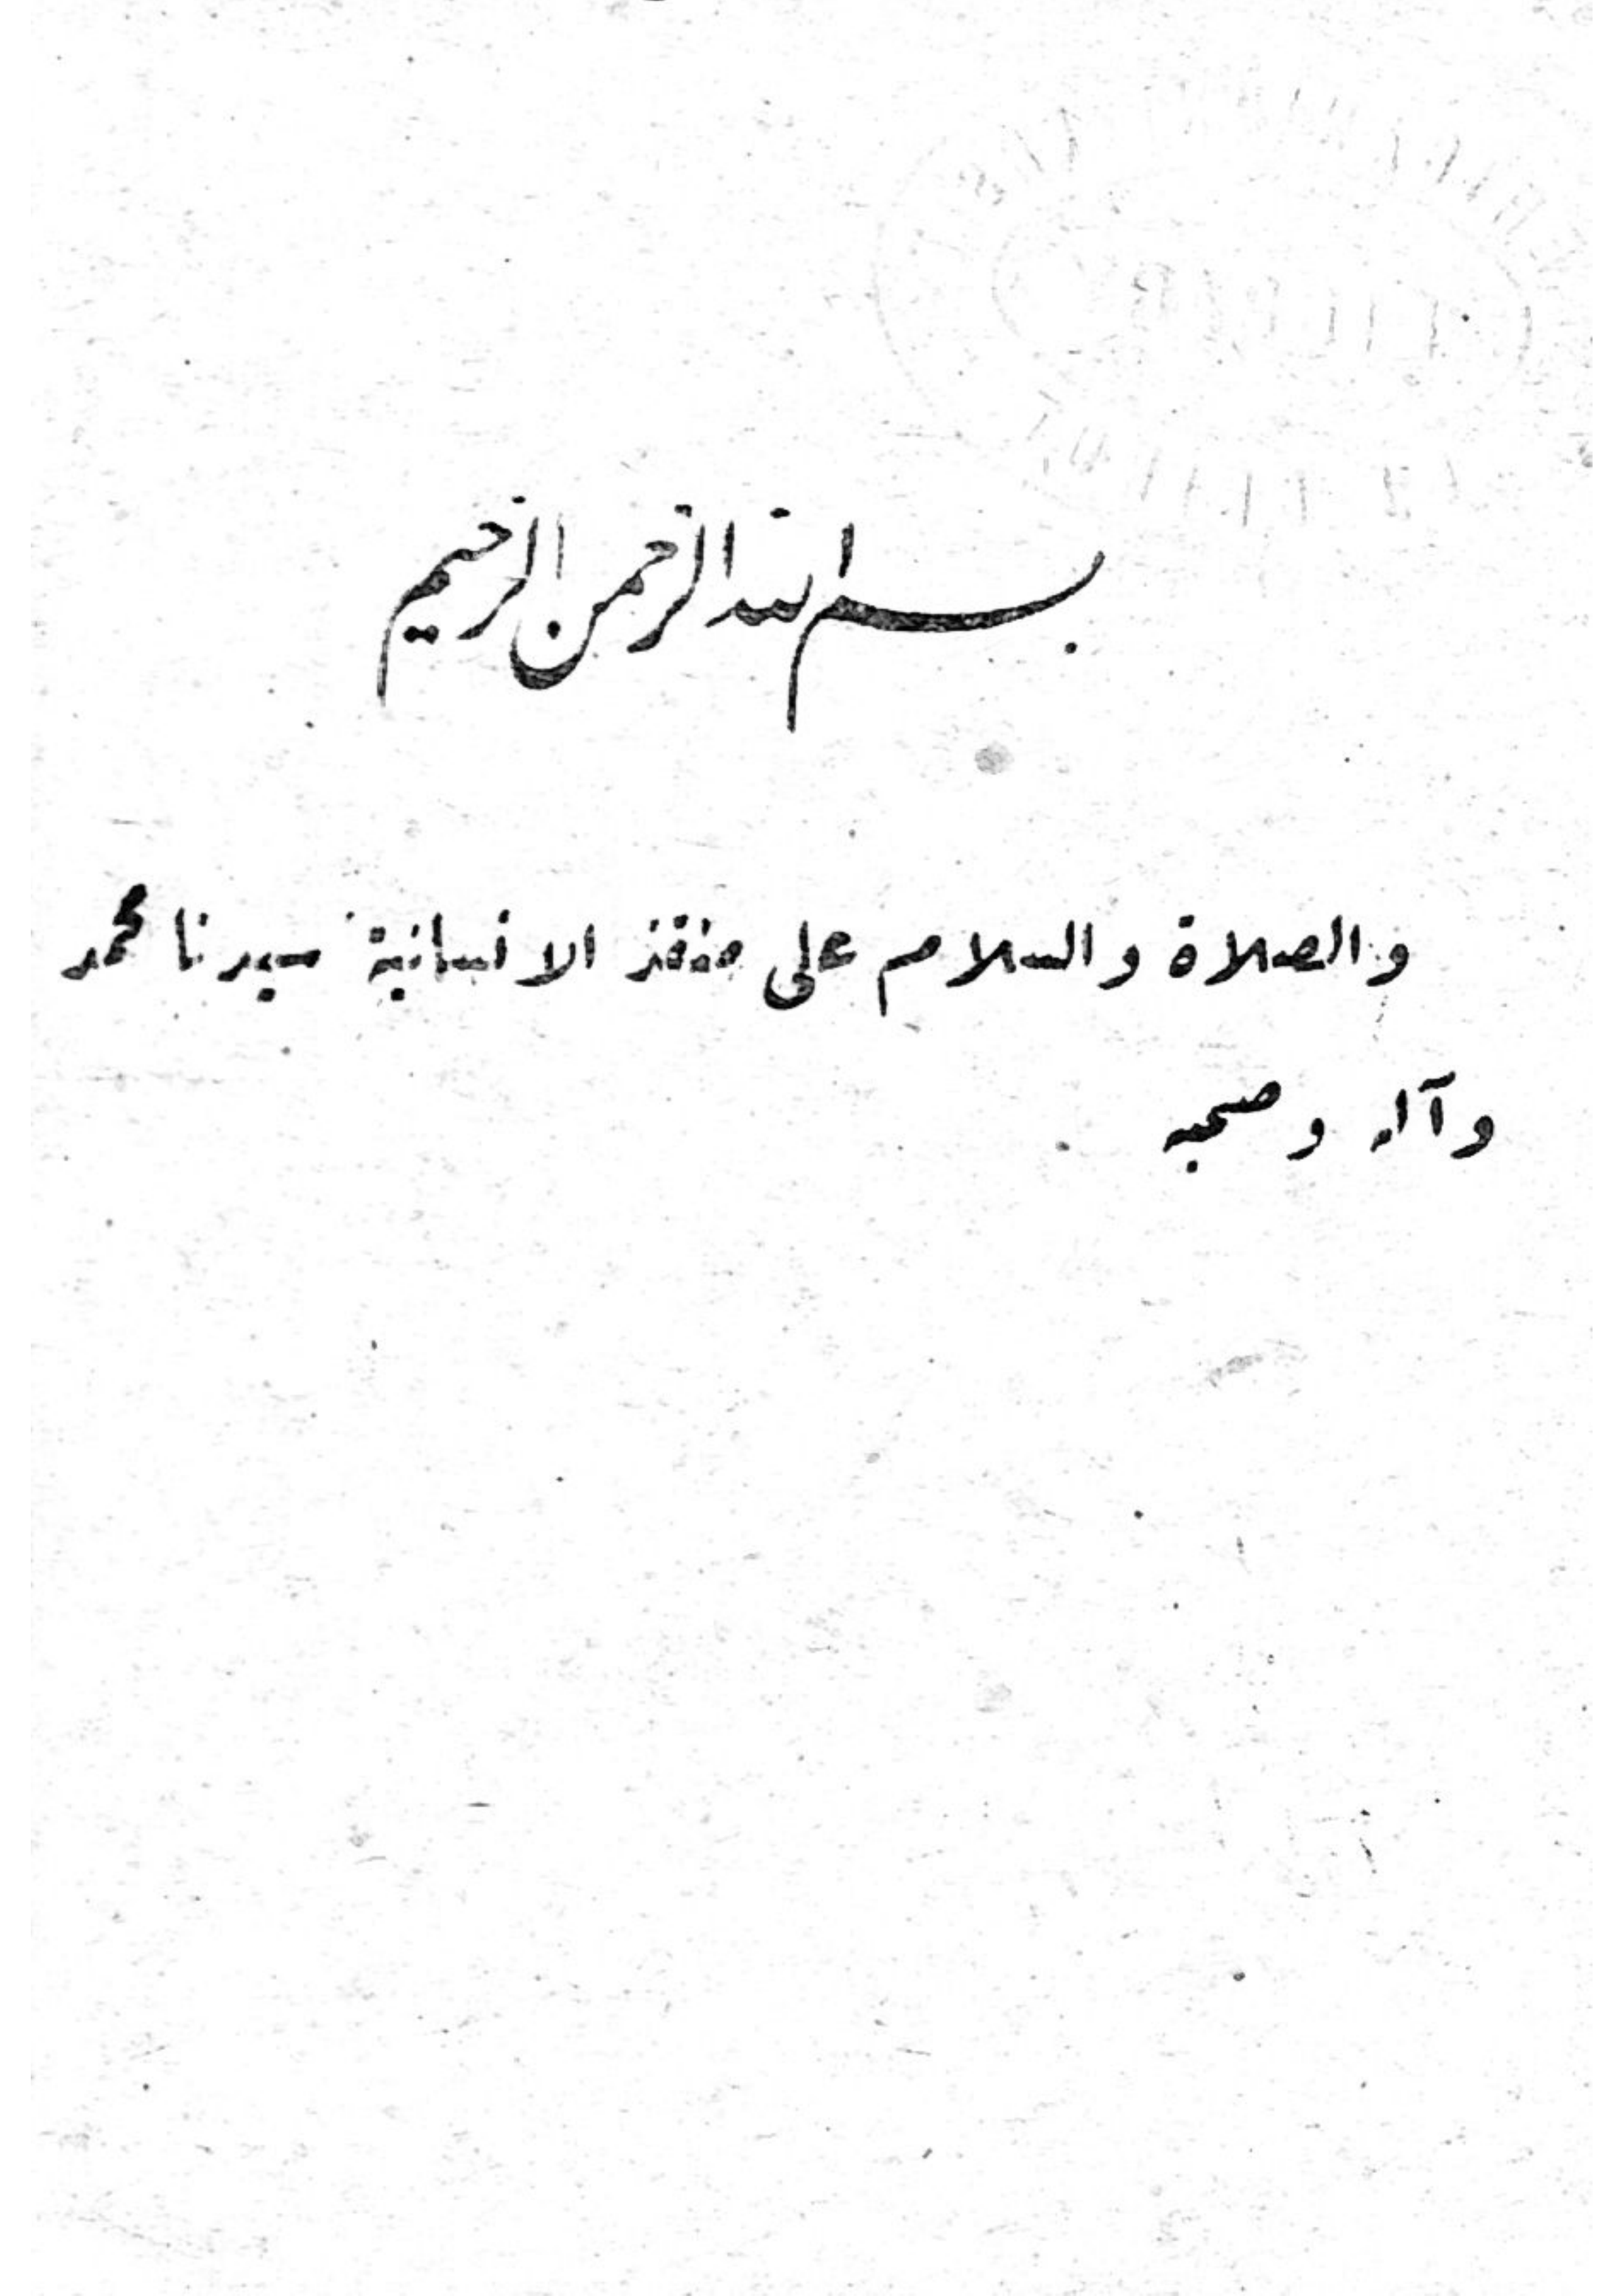 بسم الله الرحمن الرحيم
والصلاة والسلام على منقذ الانسانية سيدنا محمد
وآله وصحبه